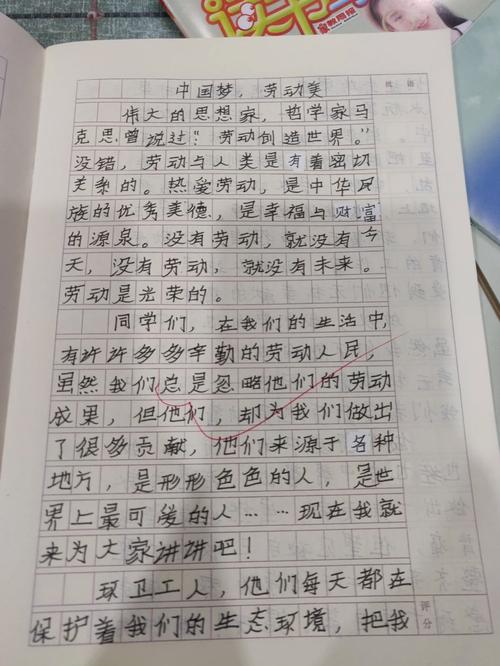 中国梦，劳动美
批语
伟大的思想家，哲学家马
克思曾说过"劳动创造世界。"
没错，劳动与人类是有着密切
关系的。热爱劳动，是中华民
族的优秀美德，是幸福与财富
的源泉。没有劳动，就没有今
天，没有劳动，就没有未来。
劳动是光荣的。
同学们，在我们的生活中，
有许许多多辛勤的劳动人民，
虽然我们总是忽略他们的劳动
成果，但他们，却为我们做出
了很多贡献，他们来源于各种
地方，是形形色色的人，是世
界上最可爱的人……现在我就
来为大家讲讲吧！
环卫工人，他们每天都在
保护着我们的生态环境，把我
评分